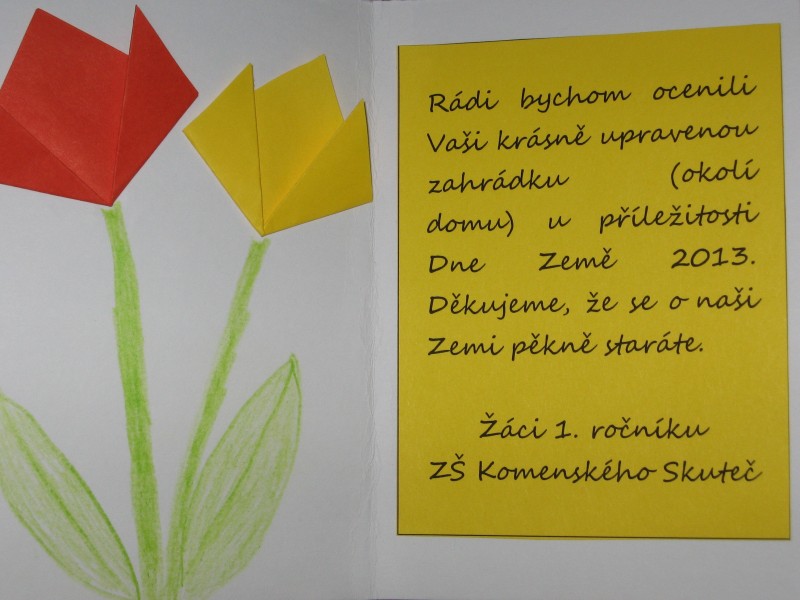 Rádi bychom ocenili
Vaši krásně upravenou
zahrádku (okolí
domu) u příležitosti
Dne Země 2013.
Děkujeme, že se o naši
Zemi pěkně staráte.
Žáci 1. ročníku
ZŠ Komenského Skuteč